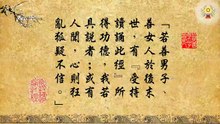 「若善男子、
善女人於後末
世，有『受持
讀誦此經』所
得功德，我若
具說者；或有
人聞，心則狂
亂狐疑不信。」